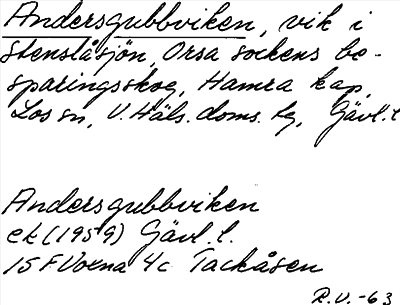 Andersgubbviken, vik i
Stenslåsjön, Orsa sockens be-
sparingsskog, Hamra kap,
Los sn, V. Häls. doms. tg, Gävl. l
Andersgubbviken
ek (1959) Gävl. l.
15 F Voxna 4c Tackåsen
R.V. -63